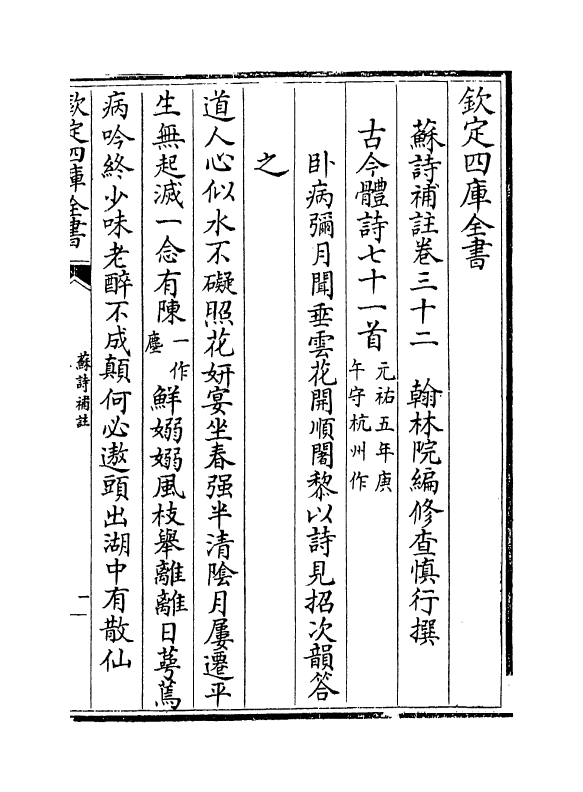 欽定四庫全書
蘇詩補註卷三十二　翰林院編修查慎行撰
古今體詩七十一首元祐五年庚午守杭州作
臥病彌月聞垂雲花開順闍黎以詩見招次韻答
之
道人心似水不礙照花妍宴坐春强半清陰月屢遷平
生無起滅一念有陳一作塵鮮嫋嫋風枝舉離離日萼蔫
病吟終少味老醉不成顛何必遨頭出湖中有散仙
欽定四庫全書
蘇詩補註
一